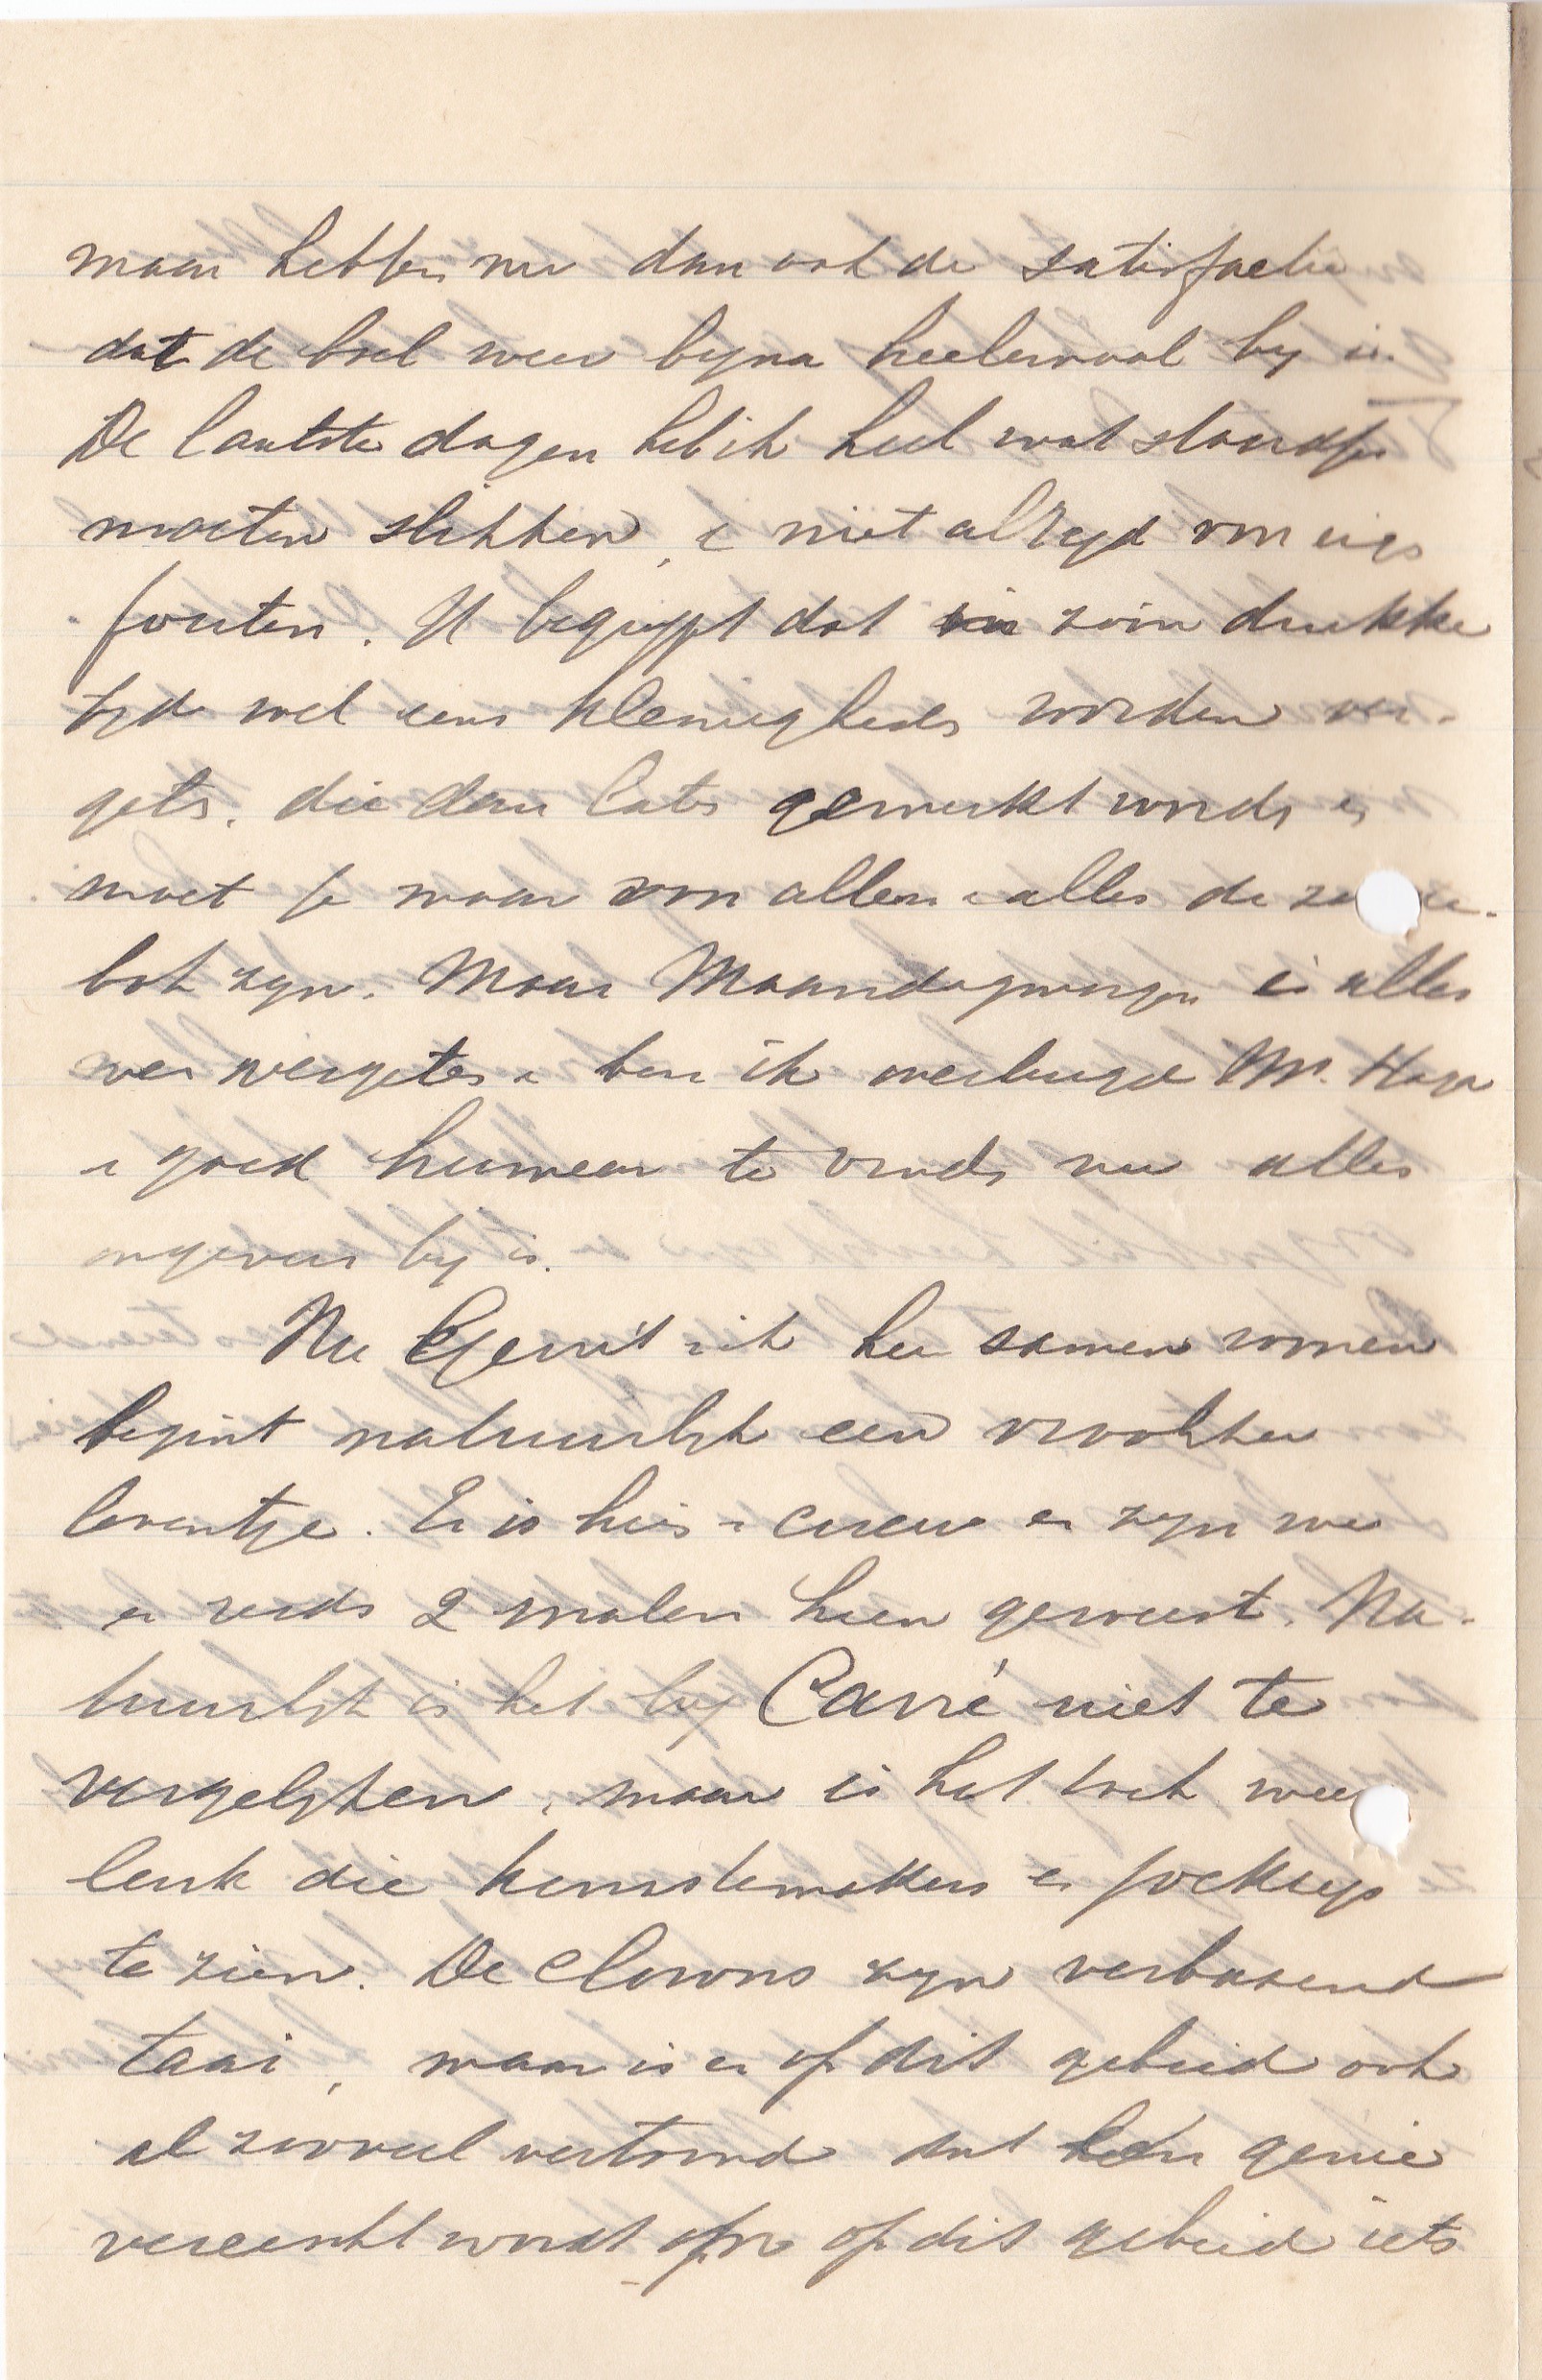 maar hebben nu dan ook de satisfactie
dat de boel weer byna heelemaal by is.
De laatste dagen heb ik heel wat standjes
moeten slikken, & niet altyd om eigen
fouten. U begrypt dat in zoo'n drukke
tyd wel eens kleinigheden worden ver-
geten, die dan later gemerkt worden en
moet je maar van allen & alles de zonde-
bok zyn. Maar Maandagmorgen is alles
weer vergeten & ben ik overtuigd Mr.
in goed humeur te vinden nu alles
ongeveer by is.
Nu Gerrit & ik hier samen wonen
begint natuurlyk een vroolyker
leventje. Er is hier een circus en zyn we
er reeds 2 malen heen geweest. Na-
tuurlyk is het by Carré niet te
vergelyken, maar is het toch weer
leuk die kunstemakers en jockeys
te zien. De clowns zyn verbazend
taai, maar is er op dit gebied ook
al zooveel vertoond dat een genie
vereischt wordt om op dit gebied iets